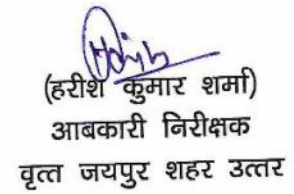 (हरीश कुमार शर्मा)
आबकारी निरीक्षक
वृत्त जयपुर शहर उत्तर